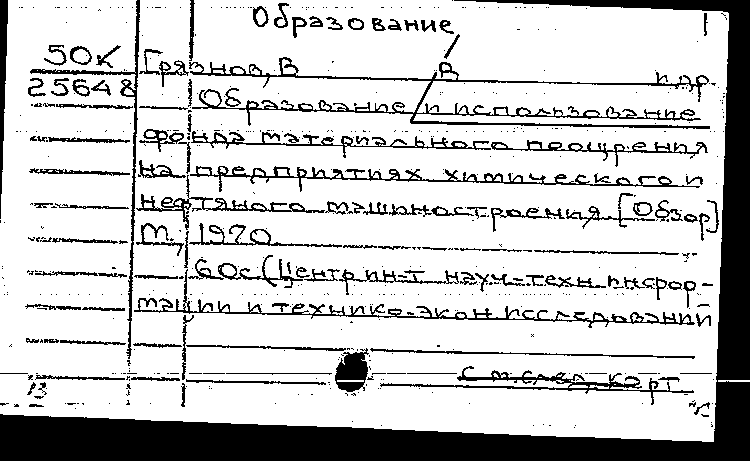 Образование
1
50К
25648
Грязнов, В В и др.
Образование и использование
фонда материального поощрения
на предприятиях химического и
нефтяного машиностроения. [Обзор]
М., 1970.
60с (Центр ин-т науч-техн инфор-
мации и технико-экон исследований
с м.след. карт
13